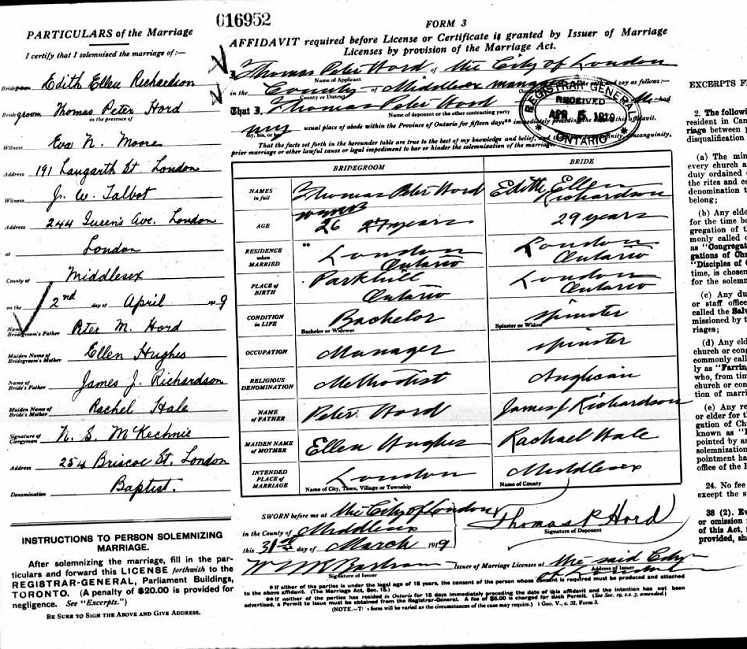 PARTICULARS of the Marriage
I certify that I solemnized the marriage of:—
Bride Edith Ellen Richardson
Bridegroom Thomas Peter Hord
in the presence of
Witness Eva N. Moore
Address 191 Langarth St. London
Witness J. W. Talbot
Address 244 Queen's Ave. London
at London
County of Middlesex
2nd day of April 19 9
Name of Bridegroom's Father Peter M. Hord
Maiden Name of Bridegroom's Mother Ellen Hughes
Name of Bride's Father James J. Richardson
Maiden Name of Bride's Mother Rachel Hale
Signature of Clergyman N. S. McKechnie
Address 254 Briscoe St. London
Denomination Baptist.
INSTRUCTIONS TO PERSON SOLEMNIZING
MARRIAGE.
After solemnizing the marriage, fill in the par-
ticulars and forward this LICENSE forthwith to the
REGISTRAR-GENERAL, Parliament Buildings,
TORONTO. (A penalty of $20.00 is provided for
negligence. See "Excerpts.")
BE SURE TO SIGN THE ABOVE AND GIVE ADDRESS.
016952
FORM 3
AFFIDAVIT required before License or Certificate is granted by Issuer of Marriage
Licenses by provision of the Marriage Act.
I, Thomas Peter Hord of the City of London
Name of Applicant
in the County of Middlesex manager and say as follows:—
County or District
That I, Thomas Peter Hord
Name of deponent or the other contracting party
my usual place of abode within the Province of Ontario for fifteen days** immediately preceding the date of this affidavit.
REGISTRAR GENERAL
RECEIVED
APR 5 1919
ONTARIO
That the facts set forth in the hereunder table are true to the best of my knowledge and belief, and consanguinity,
prior marriage or other lawful cause or legal impediment to bar or hinder the solemnization of the marriage.
BRIDEGROOM BRIDE
NAMES in full Thomas Peter Hord Edith Ellen Richardson
AGE 26 27 years 29 years
RESIDENCE when MARRIED ** London Ontario London Ontario
PLACE OF BIRTH Parkhill Ontario London Ontario
CONDITION IN LIFE Bachelor Spinster
Bachelor or Widower Spinster or Widow
OCCUPATION Manager Spinster
RELIGIOUS DENOMINATION Methodist Anglican
NAME OF FATHER Peter Hord James J Richardson
MAIDEN NAME OF MOTHER Ellen Hughes Rachael Hale
INTENDED PLACE OF MARRIAGE London Middlesex
Name of City, Town, Village or Township Name of County
SWORN before me at the City of London
in the County of Middlesex
this 31st day of March 1919
Thomas P. Hord
Signature of Deponent
Signature of Issuer
Issuer of Marriage Licenses at the said City of London
Address of Issuer
*If either of the parties is under the legal age of 18 years, the consent of the person whose consent is required must be produced and attached
to the above affidavit. (The Marriage Act, Sec. 15.)
**If neither of the parties has resided in Ontario for 15 days immediately preceding the date of this affidavit and the intention has not been
advertised, a Permit to Issue must be obtained from the Registrar-General. A fee of $5.00 is charged for such Permit.
(NOTE.—T s form will be varied as the circumstances of the case may require.) 1 Geo. V., c. 32, Form 3.
EXCERPTS F
2. The followi
resident in Can
riage between
disqualification
(a) The mini
every church a
duly ordained
the rites and ce
denomination t
belong;
(b) Any elde
for the time be
gregation of t
monly called o
as "Congregat
gations of Chr
"Disciples of C
time, is chosen
for the solemn
(c) Any du
or staff office
called the Salv
missioned by t
riages;
(d) Any eld
church or cong
commonly call
ly as "Farring
who, from tim
church or con
tion of marri
(e) Any re
or elder for th
gation of Ch
known as "
pointed by an
solemnization
pointment ha
office of the R
24. No fee
except the s
38 (2). Ev
or omission
of this Act,
provided, sha